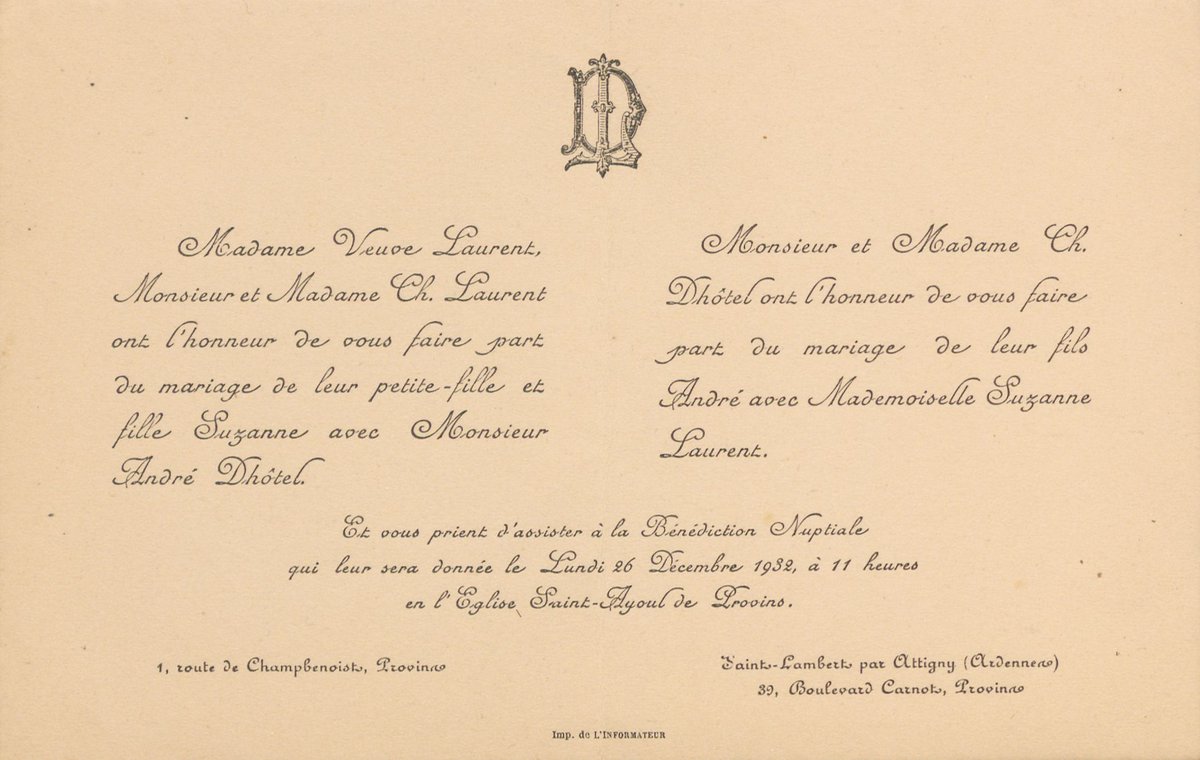 DL
Madame Veuve Laurent,
Monsieur et Madame Ch. Laurent
ont l'honneur de vous faire part
du mariage de leur petite-fille et
fille Suzanne avec Monsieur
André Dhôtel.
Monsieur et Madame Ch.
Dhôtel ont l'honneur de vous faire
part du mariage de leur fils
André avec Mademoiselle Suzanne
Laurent.
Et vous prient d'assister à la Bénédiction Nuptiale
qui leur sera donnée le Lundi 26 Décembre 1932, à 11 heures
en l'Eglise Saint-Ayoul de Provins.
1, route de Champbenoist, Provins
Saint-Lambert par Attigny (Ardennes)
39, Boulevard Carnot, Provins
Imp. de L'INFORMATEUR